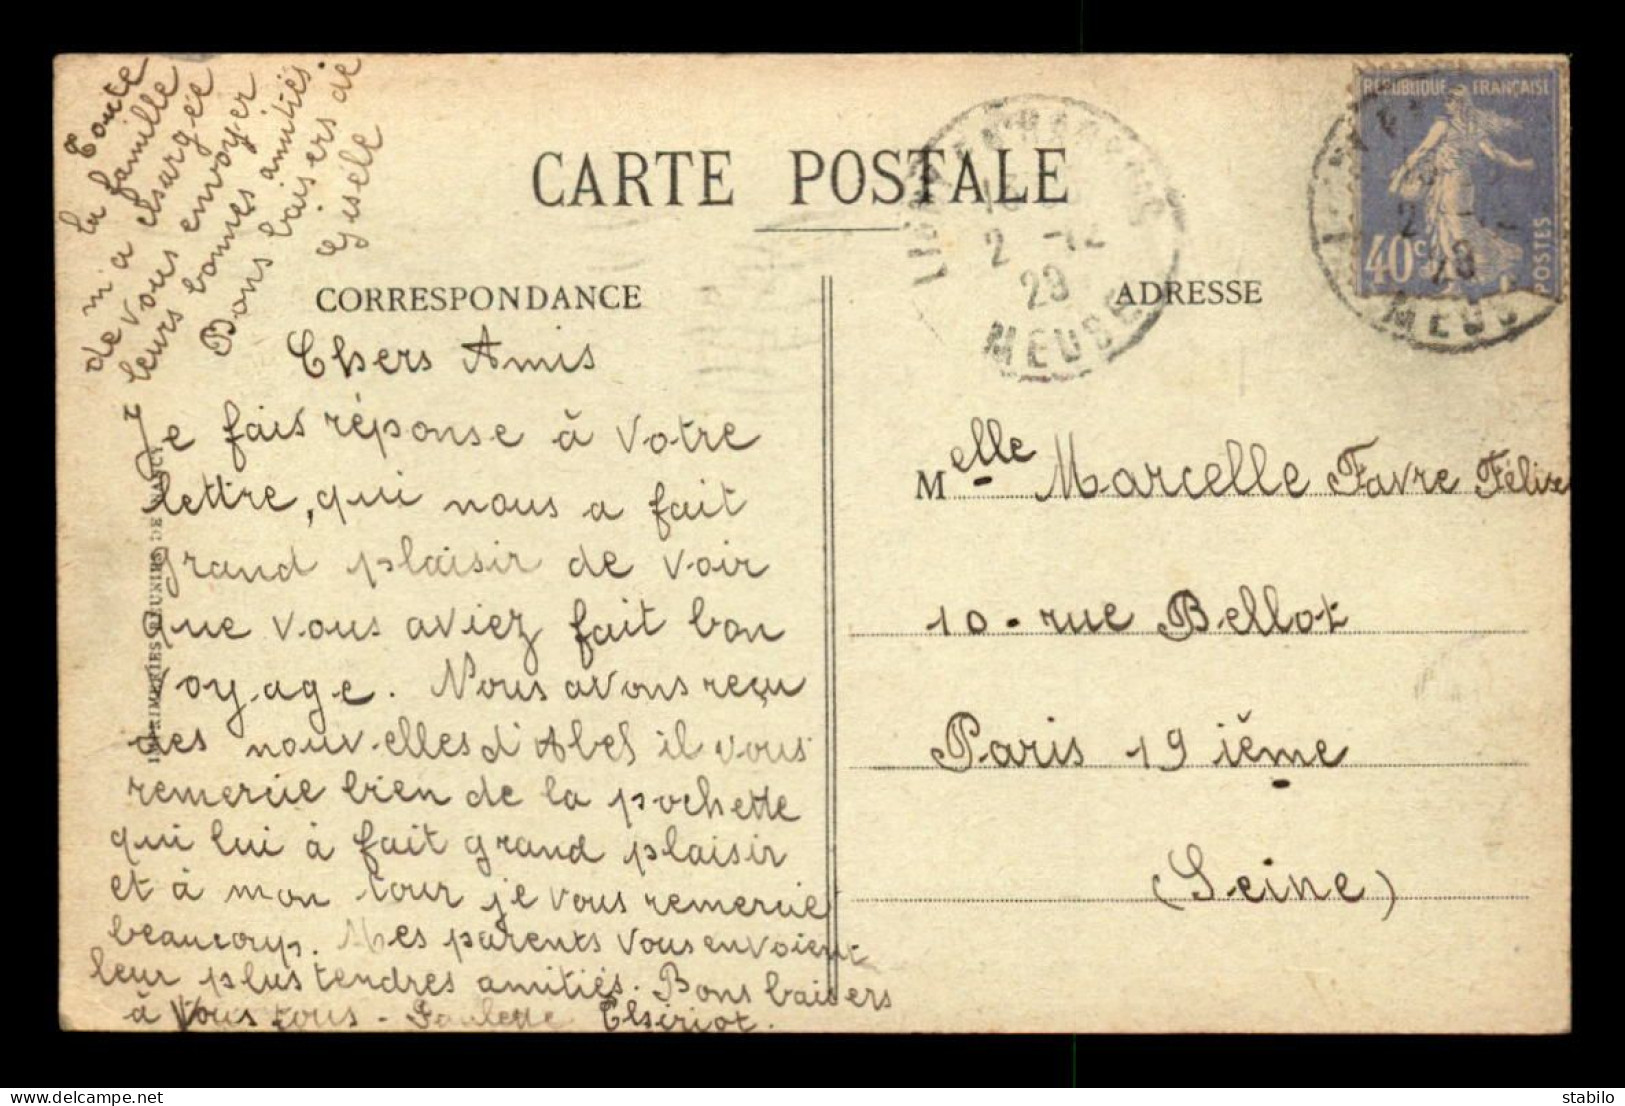 Toute
la famille
m'a chargée
de vous envoyer
leurs bonnes amitiés.
Bons baisers de
Gisèle
CARTE POSTALE
CORRESPONDANCE
ADRESSE
REPUBLIQUE FRANÇAISE
40c
POSTES
2 -12
29
MEUSE
2
29
MEUS
Chers Amis
Je fais réponse à votre
lettre, qui nous a fait
grand plaisir de voir
que vous aviez fait bon
voyage. Nous avons reçu
des nouvelles d'Abel il vous
remercie bien de la pochette
qui lui à fait grand plaisir
et à mon tour je vous remercie
beaucoup. Mes parents vous envoient
leur plus tendres amitiés. Bons baisers
à Vous tous - Paulette Thiriot.
IMPRIMERIES REUNIES DE NANCY
Melle Marcelle Favre Félix
10 - rue Bellot
Paris 19 ième
(Seine)
stabilo